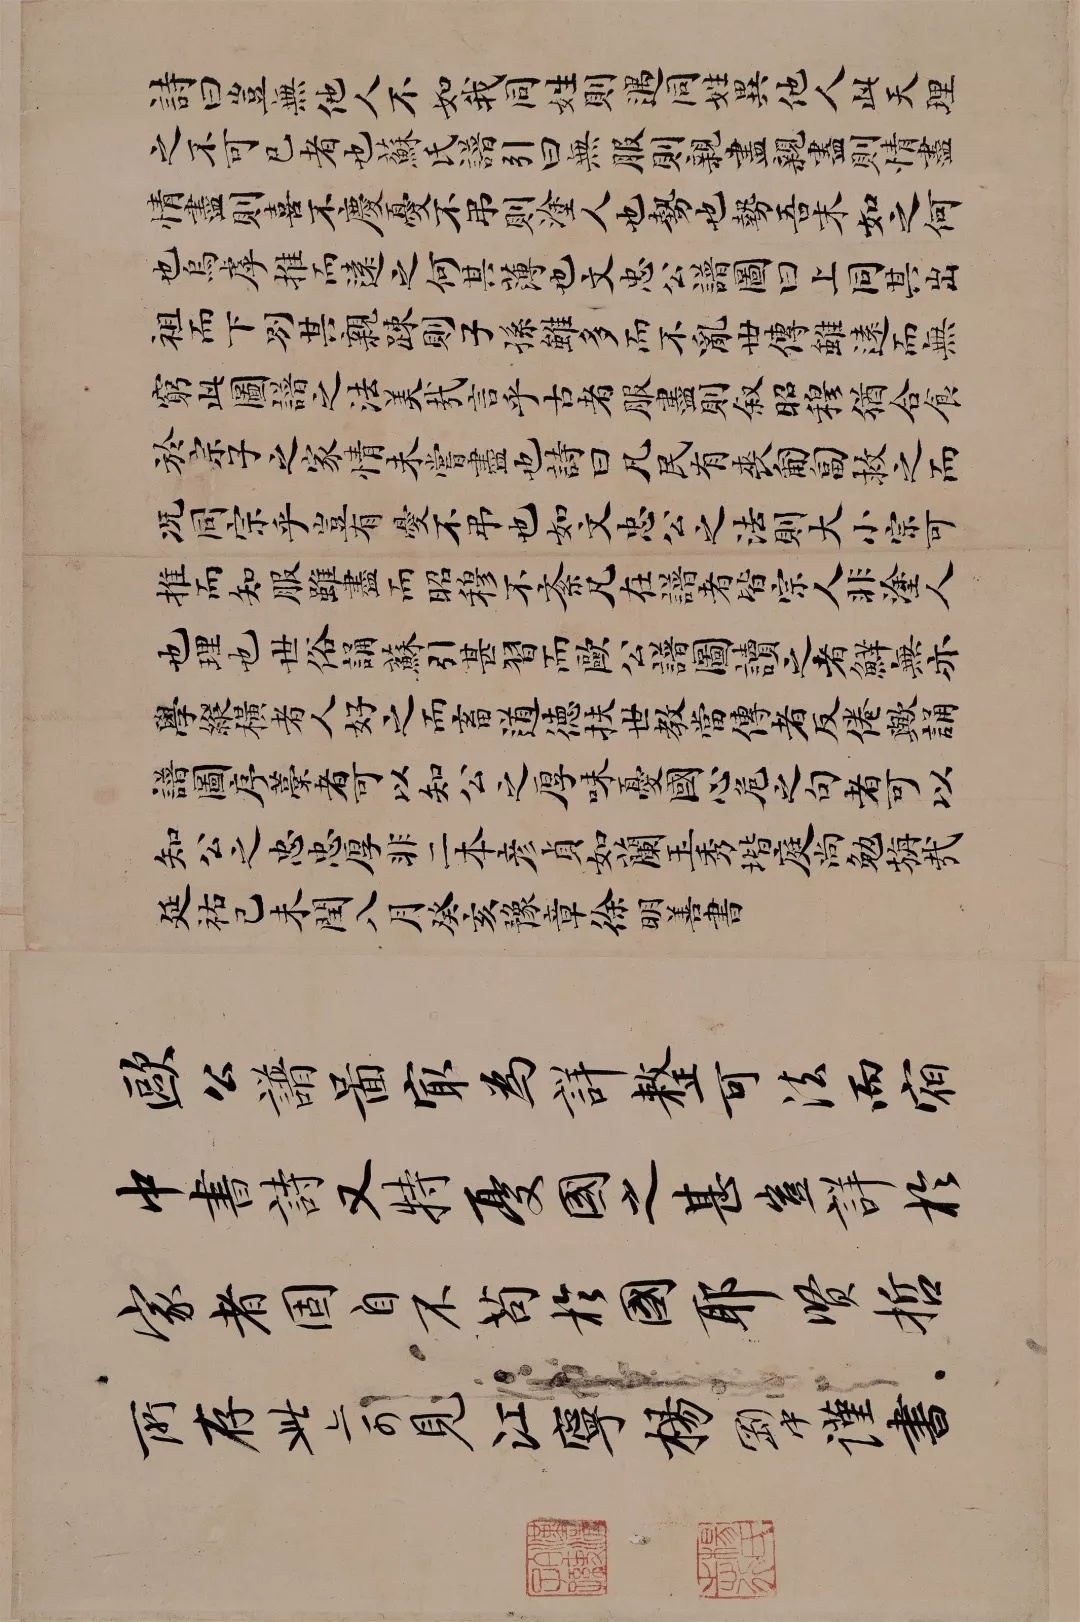 詩曰豈無他人不如我同姓則遇同姓異他人此天理
之不可已者也蘇氏譜引曰無服則親盡親盡則情盡
情盡則喜不慶憂不弔則塗人也勢也勢吾末如之何
也烏虖推而遠之何其薄也文忠公譜圖曰上同其出
祖而下別其親疎則子孫雖多而不亂世傳雖遠而無
窮此圖譜之法美哉言乎古者服盡則叙昭穆猶合食
於宗子之家情未嘗盡也詩曰凡民有喪匍匐救之而
况同宗乎豈有憂不弔也如文忠公之法則大小宗可
推而知服雖盡而昭穆不紊凡在譜者皆宗人非塗人
也理也世俗誦蘇引甚習而歐公譜圖讀之者鮮無亦
學縱橫者人好之而畜道德扶世教當傳者反倦歟誦
譜圖序藁者可以知公之厚味憂國心危之句者可以
知公之忠忠厚非二本彥貞如蘭玉秀堦庭尚勉旃哉
延祐己未閏八月癸亥豫章徐明善書
歐公譜啚寔為詳整可法而宿
中書詩又特憂國之甚豈詳於
家者固自不苟於國耶賢哲
所存此亦可見江寧楊剛中謹書